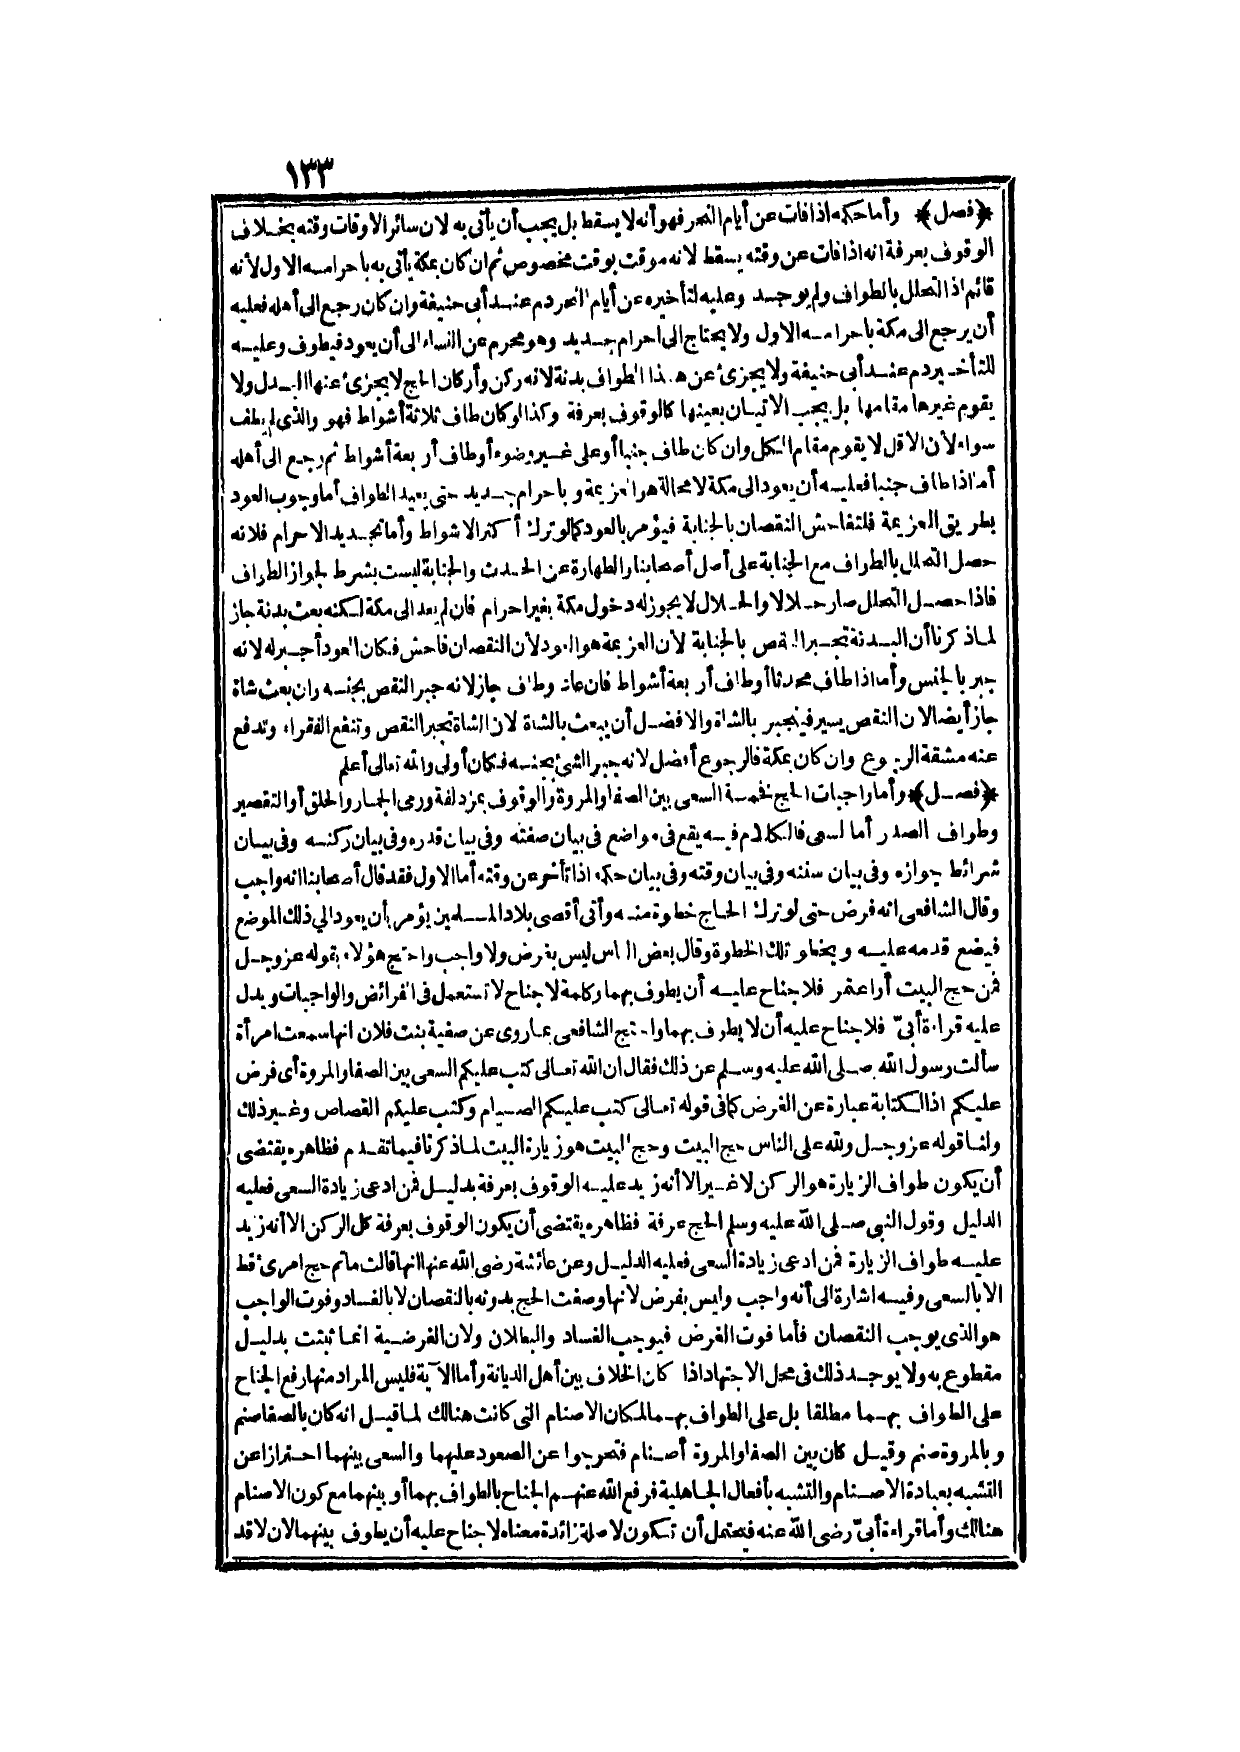 ١٣٣
﴿فصل﴾ وأما حكمه اذا فات عن أيام النحر فهو أنه لا يسقط بل يجب أن يأتى به لان سائر الاوقات وقته بخلاف
الوقوف بعرفة انه اذا فات عن وقته يسقط لانه موقت بوقت مخصوص ثم ان كان بمكة يأتى به باحرامه الاول لأنه
قائم اذ التحلل بالطواف ولم يوجد وعليه لتأخيره عن أيام النحر دم عند أبى حنيفة وان كان رجع الى أهله فعليه
أن يرجع الى مكة باحرامه الاول ولا يحتاج الى احرام جديد وهو محرم عن النساء الى أن يعود فيطوف وعليه
للتأخير دم عند أبى حنيفة ولا يجزئ عن هذا الطواف بدنة لانه ركن وأركان الحج لا يجزئ عنها البدل ولا
يقوم غيرها مقامها بل يجب الاتيان بعينها كالوقوف بعرفة وكذا لو كان طاف ثلاثة أشواط فهو والذى لم يطف
سواء لأن الاقل لا يقوم مقام الكل وان كان طاف جنبا أو على غير وضوء أو طاف أربعة أشواط ثم رجع الى أهله
أما اذا طاف جنبا فعليه أن يعود الى مكة لا محالة هو العزيمة وباحرام جديد حتى يعيد الطواف أما وجوب العود
بطريق العزيمة فلتفاحش النقصان بالجنابة فيؤمر بالعود كما لو ترك أكثر الاشواط وأما تجديد الاحرام فلانه
حصل التحلل بالطواف مع الجنابة على أصل أصحابنا والطهارة عن الحدث والجنابة ليست بشرط لجواز الطواف
فاذا حصل التحلل صار حلالا والحلال لا يجوز له دخول مكة بغير احرام فان لم يعد الى مكة لكنه بعث بدنة جاز
لما ذكرنا أن البدنة تجبر النقص بالجنابة لأن العزيمة هو العود لأن النقصان فاحش فكان العود أجبر له لانه
جبر بالجنس وأما اذا طاف محدثا أو طاف أربعة أشواط فان عاد وطاف جاز لانه جبر النقص بجنسه وان بعث شاة
جاز أيضا لان النقص يسير فينجبر بالشاة والافضل أن يبعث بالشاة لان الشاة تجبر النقص وتنفع الفقراء وتدفع
عنه مشقة الرجوع وان كان بمكة فالرجوع أفضل لانه جبر الشئ بجنسه فكان أولى والله تعالى أعلم
﴿فصل﴾ وأما واجبات الحج فخمسة السعى بين الصفا والمروة والوقوف بمزدلفة ورمى الجمار والحلق أو التقصير
وطواف الصدر أما لسعى فالكلام فيه يقع فى مواضع فى بيان صفته وفى بيان قدره وفى بيان ركنه وفى بيان
شرائط جوازه وفى بيان سننه وفى بيان وقته وفى بيان حكمه اذا تأخر عن وقته أما الاول فقد قال أصحابنا انه واجب
وقال الشافعى انه فرض حتى لو ترك الحاج خطوة منه وأتى أقصى بلاد المسلمين يؤمر بأن يعود الى ذلك الموضع
فيضع قدمه عليه ويخطو تلك الخطوة وقال بعض الناس ليس بفرض ولا واجب واحتج هؤلاء بقوله عز وجل
فمن حج البيت أو اعتمر فلا جناح عليه أن يطوف بهما وكلمة لا جناح لا تستعمل فى الفرائض والواجبات ويدل
عليه قراءة أبىّ فلا جناح عليه أن لا يطوف بهما واحتج الشافعى بما روى عن صفية بنت فلان انها سمعت امرأة
سألت رسول الله صلى الله عليه وسلم عن ذلك فقال ان الله تعالى كتب عليكم السعى بين الصفا والمروة أى فرض
عليكم اذ الكتابة عبارة عن الفرض كما فى قوله تعالى كتب عليكم الصيام وكتب عليكم القصاص وغير ذلك
ولنا قوله عز وجل ولله على الناس حج البيت وحج البيت هو زيارة البيت لما ذكرنا فيما تقدم فظاهره يقتضى
أن يكون طواف الزيارة هو الركن لا غير الا أنه زيد عليه الوقوف بعرفة بدليل فمن ادعى زيادة السعى فعليه
الدليل وقول النبى صلى الله عليه وسلم الحج عرفة فظاهره يقتضى أن يكون الوقوف بعرفة كل الركن الا أنه زيد
عليه طواف الزيارة فمن ادعى زيادة السعى فعليه الدليل وعن عائشة رضى الله عنها انها قالت ما تم حج امرئ قط
الا بالسعى وفيه اشارة الى أنه واجب وليس بفرض لانها وصفت الحج بدونه بالنقصان لا بالفساد وفوت الواجب
هو الذى يوجب النقصان فأما فوت الفرض فيوجب الفساد والبطلان ولان الفرضية انما ثبتت بدليل
مقطوع به ولا يوجد ذلك فى محل الاجتهاد اذا كان الخلاف بين أهل الديانة وأما الآية فليس المراد منها رفع الجناح
على الطواف بهما مطلقا بل على الطواف بهما لمكان الاصنام التى كانت هنالك لما قيل انه كان بالصفا صنم
وبالمروة صنم وقيل كان بين الصفا والمروة أصنام فتحرجوا عن الصعود عليهما والسعى بينهما احترازا عن
التشبه بعبادة الاصنام والتشبه بأفعال الجاهلية فرفع الله عنهم الجناح بالطواف بهما أو بينهما مع كون الاصنام
هنالك وأما قراءة أبىّ رضى الله عنه فيحتمل أن تكون لا صلة زائدة معناه لا جناح عليه أن يطوف بينهما لان لا قد